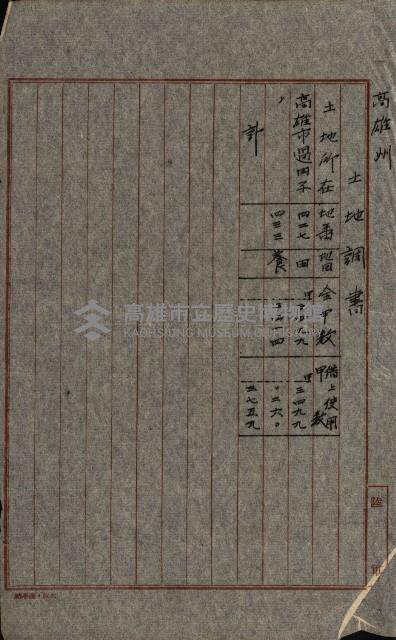 高雄州
土地調書
土地所在 地番 地目 全甲数 借上使用甲数
高雄市過田子 四二七 田
〃 四三三 養 〇二六〇
計 三七五九
高雄市立歷史博物館
KAOHSIUNG MUSEUM OF HISTORY
陸軍